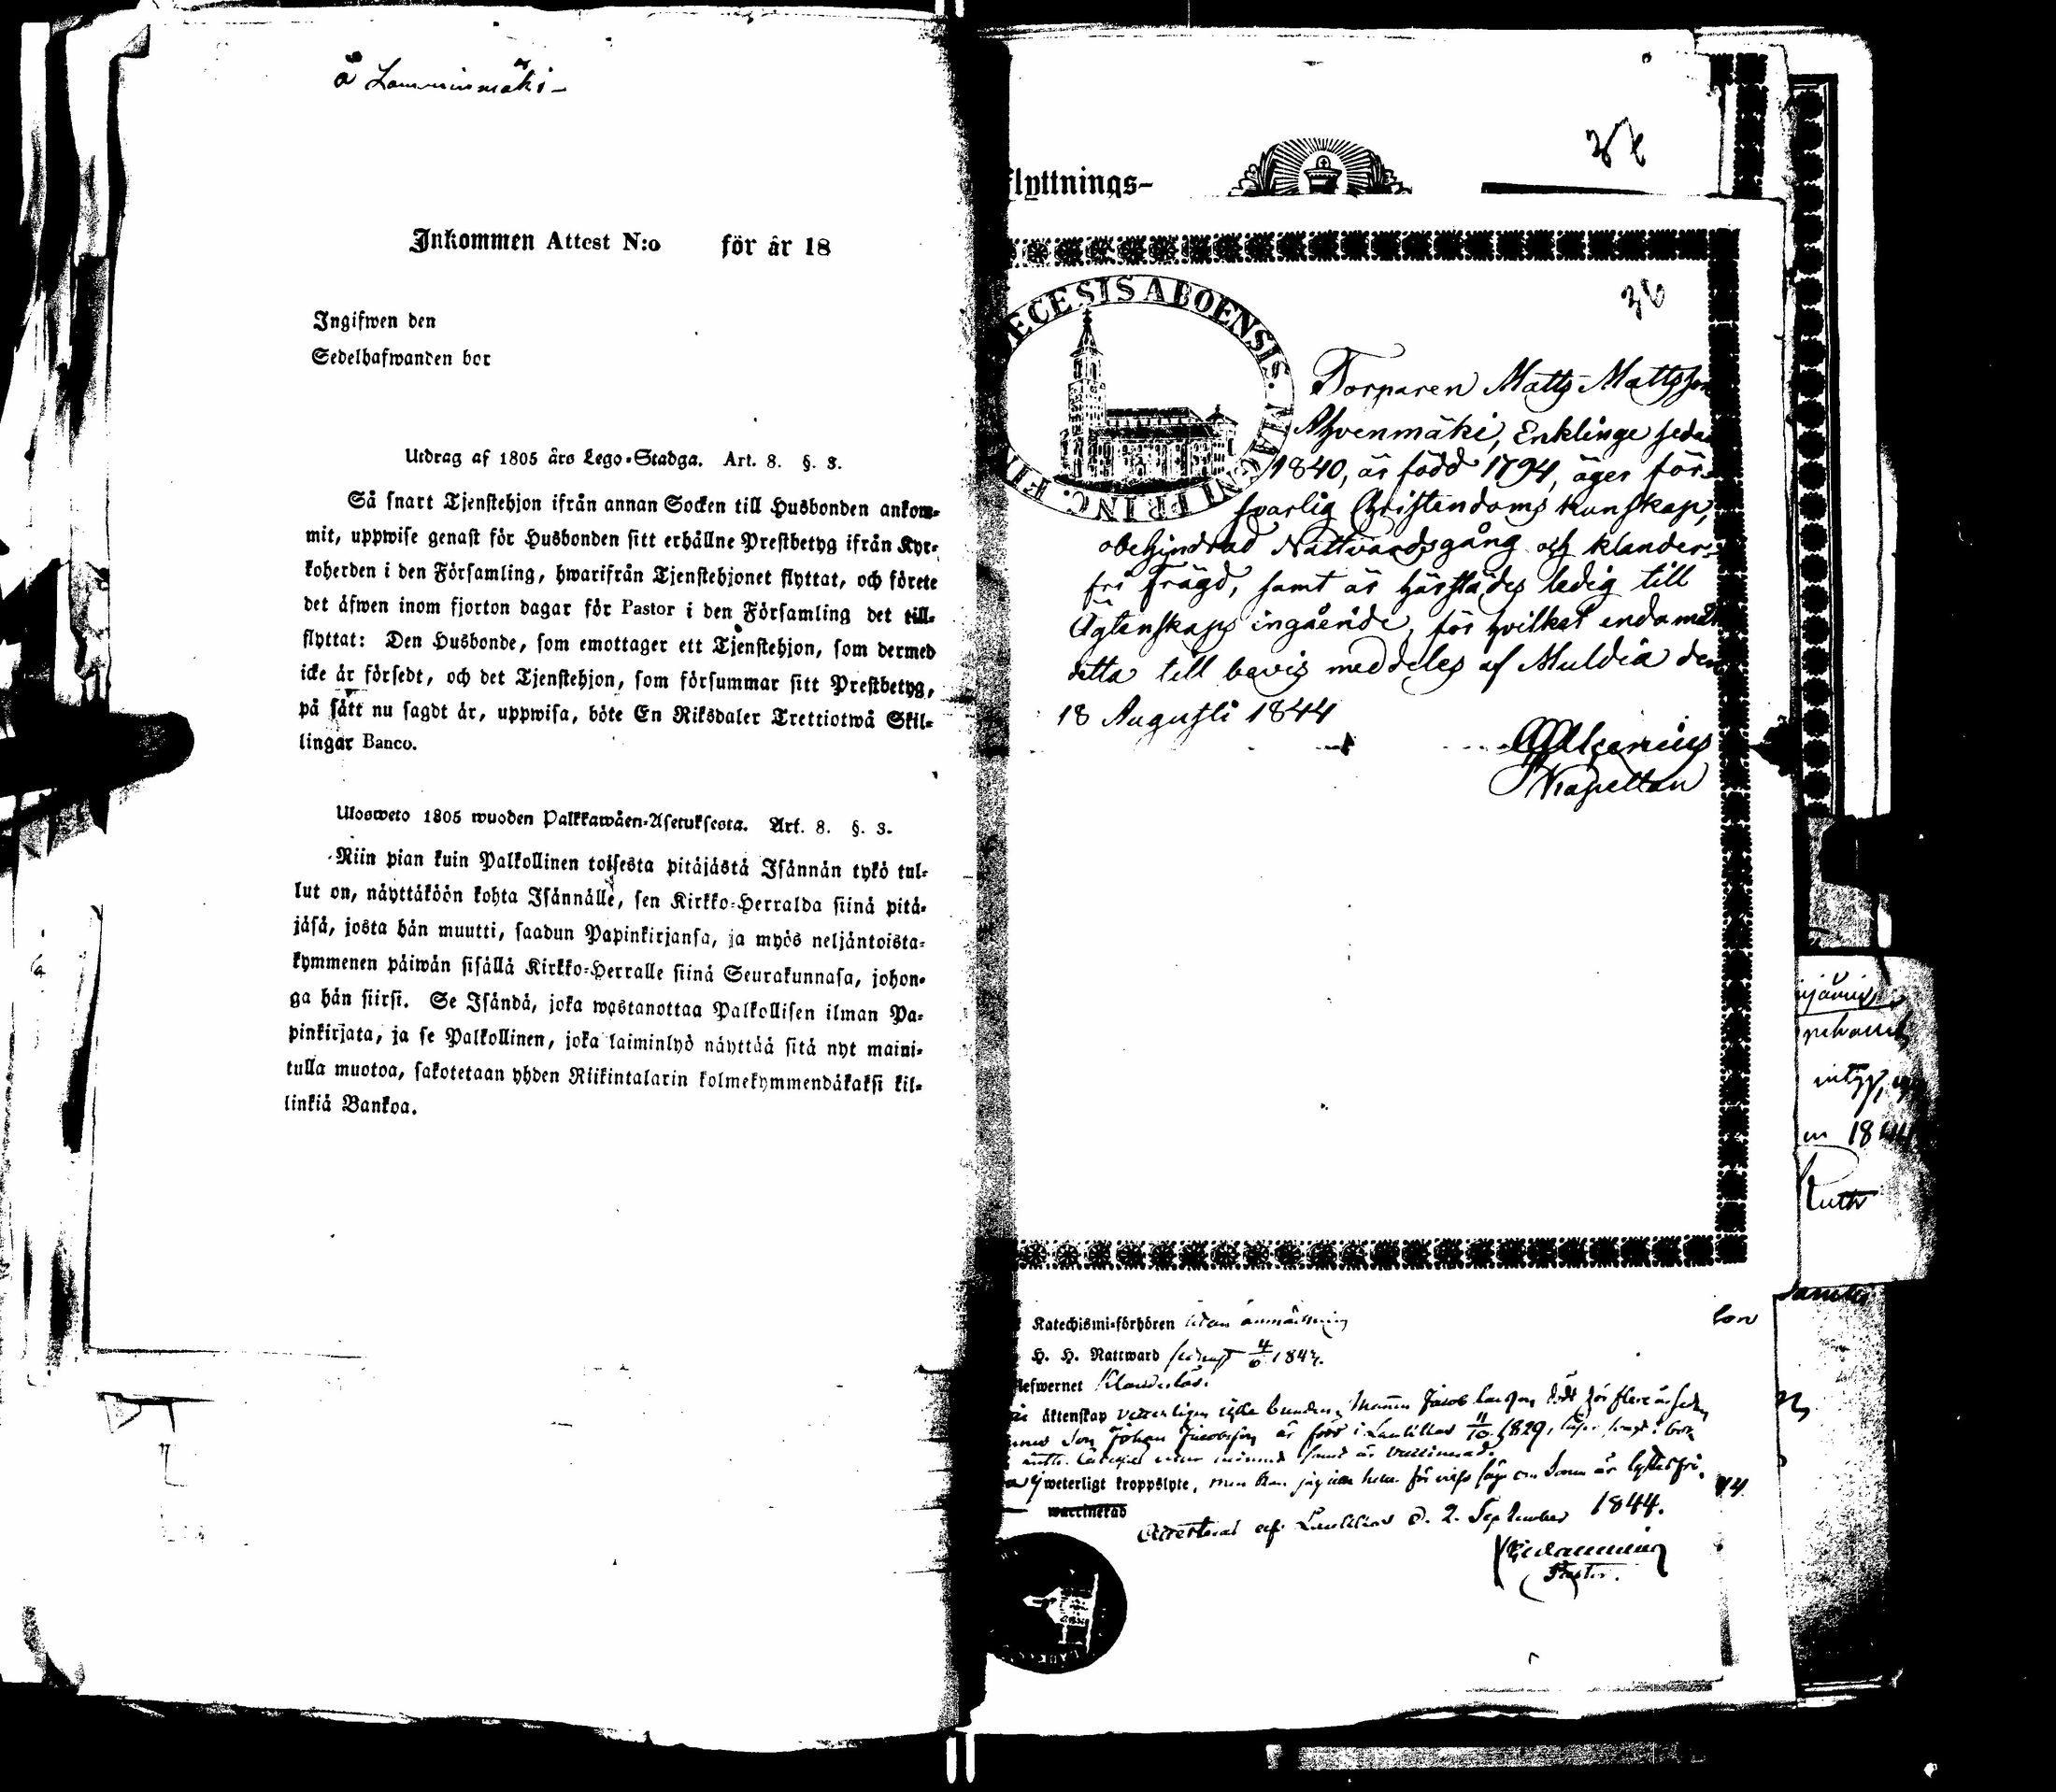 å Lamminmäki
Inkommen Attest N:o för år 18
Ingifwen den
Sedelhafwanden bor
Utdrag af 1805 års Lego-Stadga. Art. 8. §. 3.
Så snart Tjenstehjon ifrån annan Socken till Husbonden ankom-
mit, uppwise genast för Husbonden sitt erhållne Prestbetyg ifrån Kyr-
koherden i den Församling, hwarifrån Tjenstehjonet flyttat, och förete
det äfwen inom fjorton dagar för Pastor i den Församling det till-
flyttat: Den Husbonde, som emottager ett Tjenstehjon, som dermed
icke är försedt, och det Tjenstehjon, som försummar sitt Prestbetyg,
på sätt nu sagdt är, uppwisa, böte En Riksdaler Trettiotwå Skil-
lingar Banco.
Ulosweto 1805 wuoden Palkkawäen-Asetuksesta. Art. 8. §. 3.
Niin pian kuin Palkollinen toisesta pitäjästä Isännän tykö tul-
lut on, näyttäköön kohta Isännälle, sen Kirkko-Herralda siinä pitä-
jäsä, josta hän muutti, saadun Papinkirjansa, ja myös neljäntoista-
kymmenen päiwän sisällä Kirkko-Herralle siinä Seurakunnasa, johon-
ga hän siirsi. Se Isändä, joka wastanottaa Palkollisen ilman Pa-
pinkirjata, ja se Palkollinen, joka laiminlyö näyttää sitä nyt maini-
tulla muotoa, sakotetaan yhden Riikintalarin kolmekymmendäkaksi kil-
linkiä Bankoa.
flyttnings-
36
DIOECESIS ABOENSIS. MAGNI PRINC. FIN
Torparen Matts Mattsson
Ahvenmäki, Enklinge sedan
1840, är född 1794, äger för-
svarlig Christendoms kunskap,
obehindrad Nattvardsgång och klander-
fri frägd, samt är härstädes ledig till
Ägtenskaps ingående, för hvilket endamål
detta till bevis meddeles af Muldia den
18 Augusti 1844
Kapellan
Katechismi-förhören utan anmärkning
H. H. Nattward senast 4/6 1844.
lefwernet Klanderlös.
äktenskap veterligen icke bunden, Mannen Jacob
Son Johan Jacobsson är född i 11/10 1829,
weterligt kroppslyte, men kan jag icke heller för visso säga om Sonen är lytesfri.
waccinerad
Attesterad af d. 2. September 1844.
Pastor.
en 1844
samt